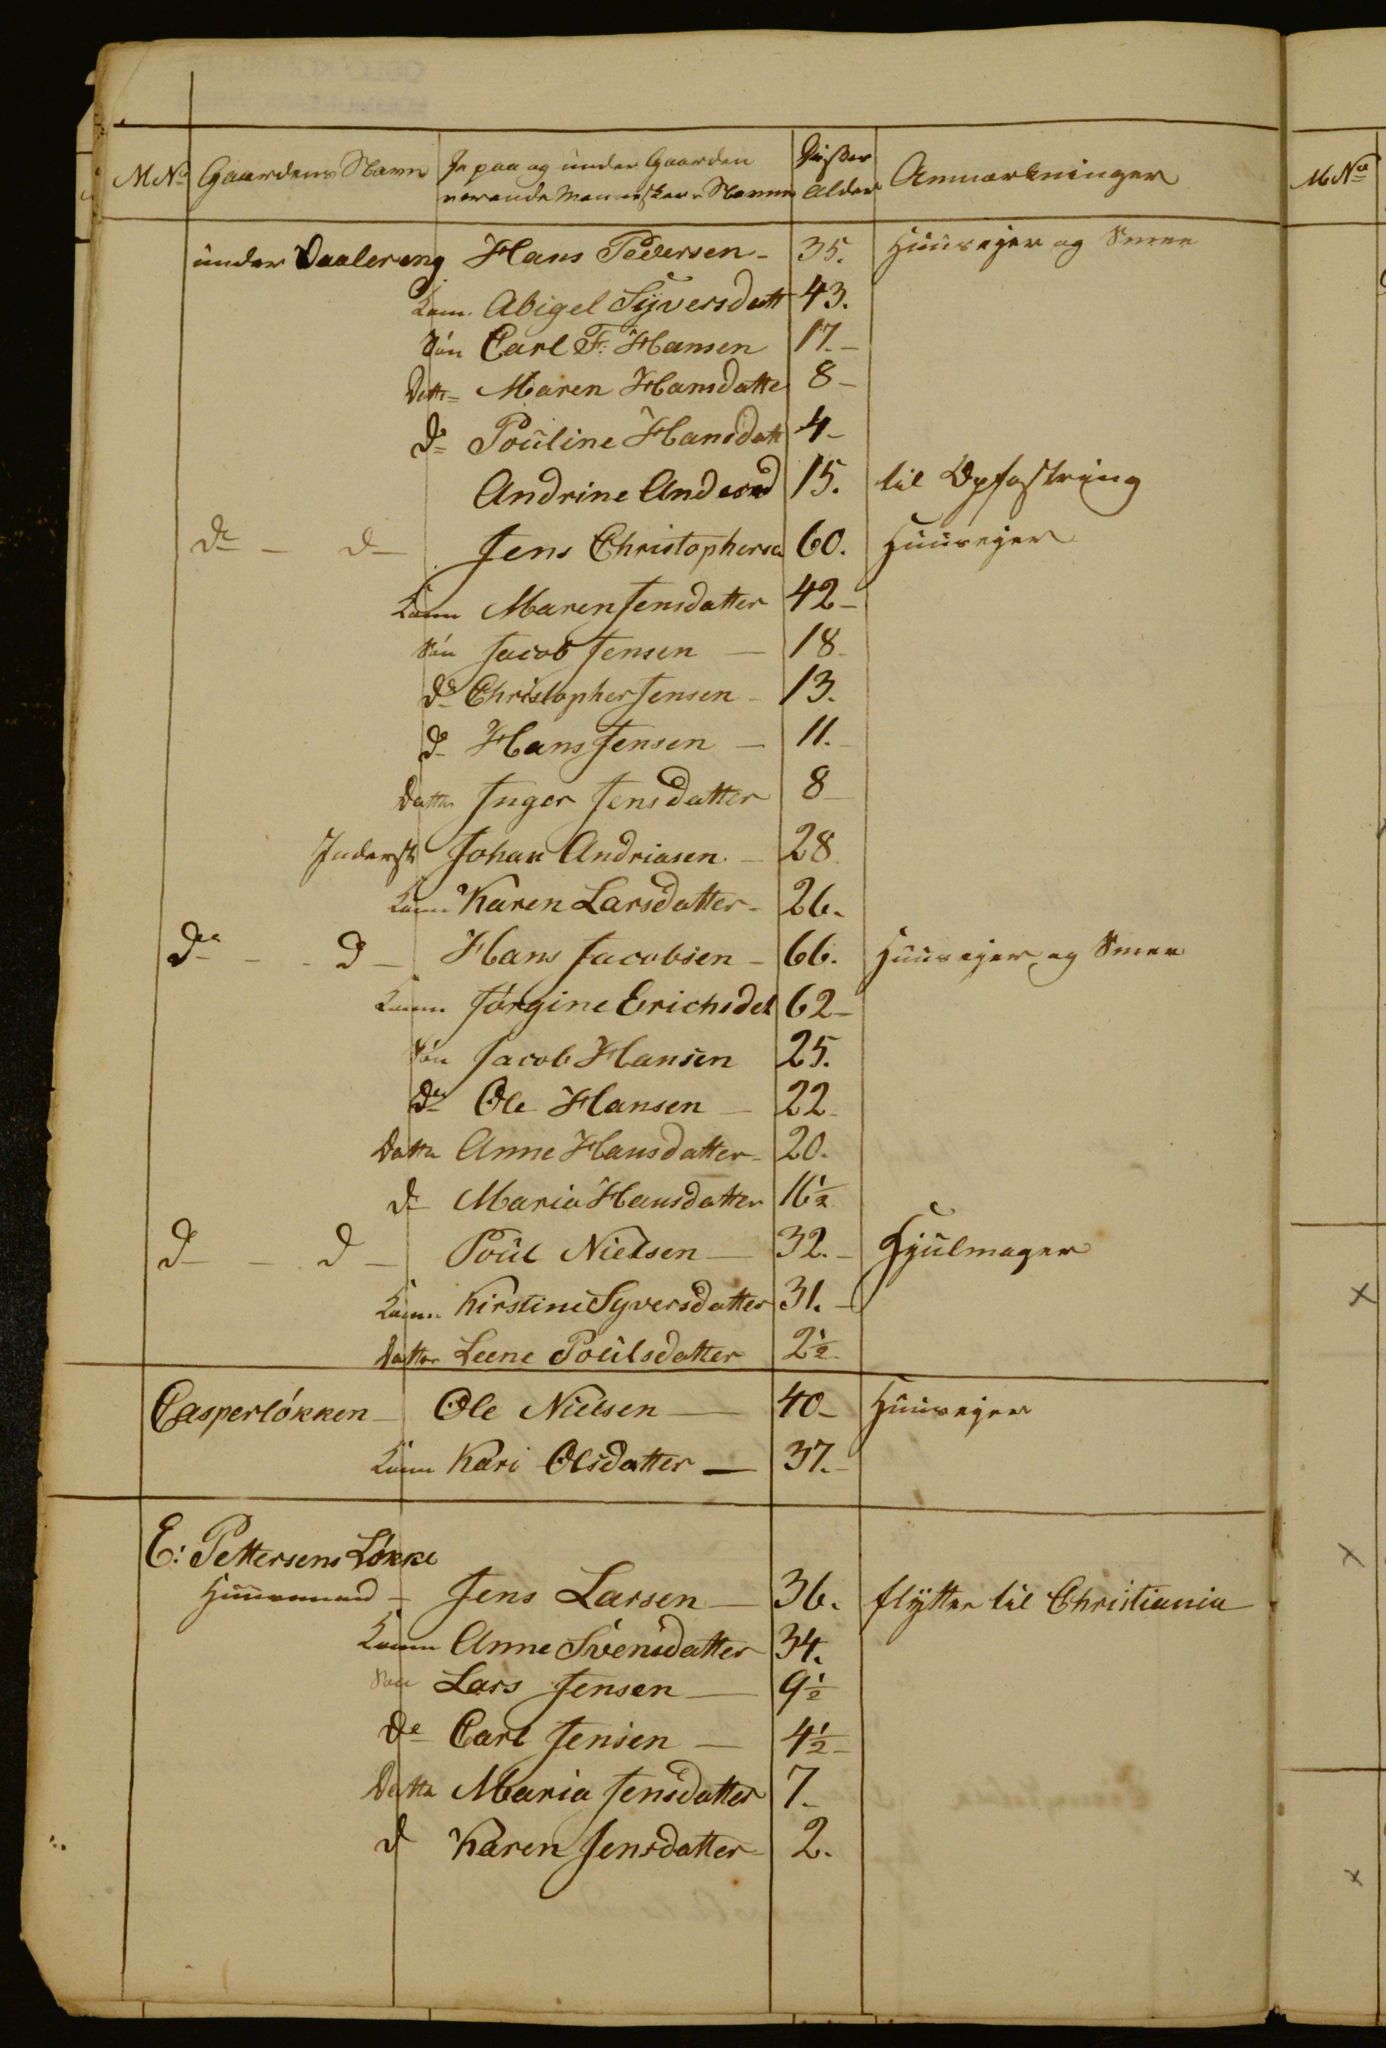 M No Gaardens Navn De paa og under Gaarden værende Menneskers Navne Disses Alder Anmærkninger
M No
under Vaalereng Hans Pedersen - 35. Huuseier og Smed
Kone Abigel Syversdatt 43.
Søn Carl F: Hansen 17. -
Dattr Maren Hansdatte 8 -
Do Pouline Hansdatt 4 -
Andrine Andersd 15. til Opfostring
Do - D - Jens Christophersen 60. Huuseier
Kone Maren Jensdatter 42 -
Søn Jacob Jensen - 18 -
Do Christopher Jensen - 13.
Do Hans Jensen - 11. -
Datter Inger Jensdatter 8 -
Inderst Johan Andriasen. - 28
Kone Karen Larsdatter - 26.
Do - - D - Hans Jacobsen - 66. Huuseier og Smed
Kone Jørgine Erichsdat 62 -
Søn Jacob Hansen 25.
Do Ole Hansen - 22 -
Datter Anne Hansdatter - 20.
Do Maria Hansdatter 16½
D - - D - Poul Nielsen - 32. - Hjulmager
Kone Kirstine Syversdatter 31. -
Datter Leene Poulsdatter 2½ -
Casperløkken - Ole Nielsen - 40 - Huuseier
Kone Kari Olsdatter - 37. -
E: Pettersens Løkke
Huusmand - Jens Larsen - 36. flytter til Christiania
Kone Anne Svensdatter 34.
Søn Lars Jensen - 9½
Do Carl Jensen - 4½ -
Datter Maria Jensdatter 7. -
D Karen Jensdatter - 2.